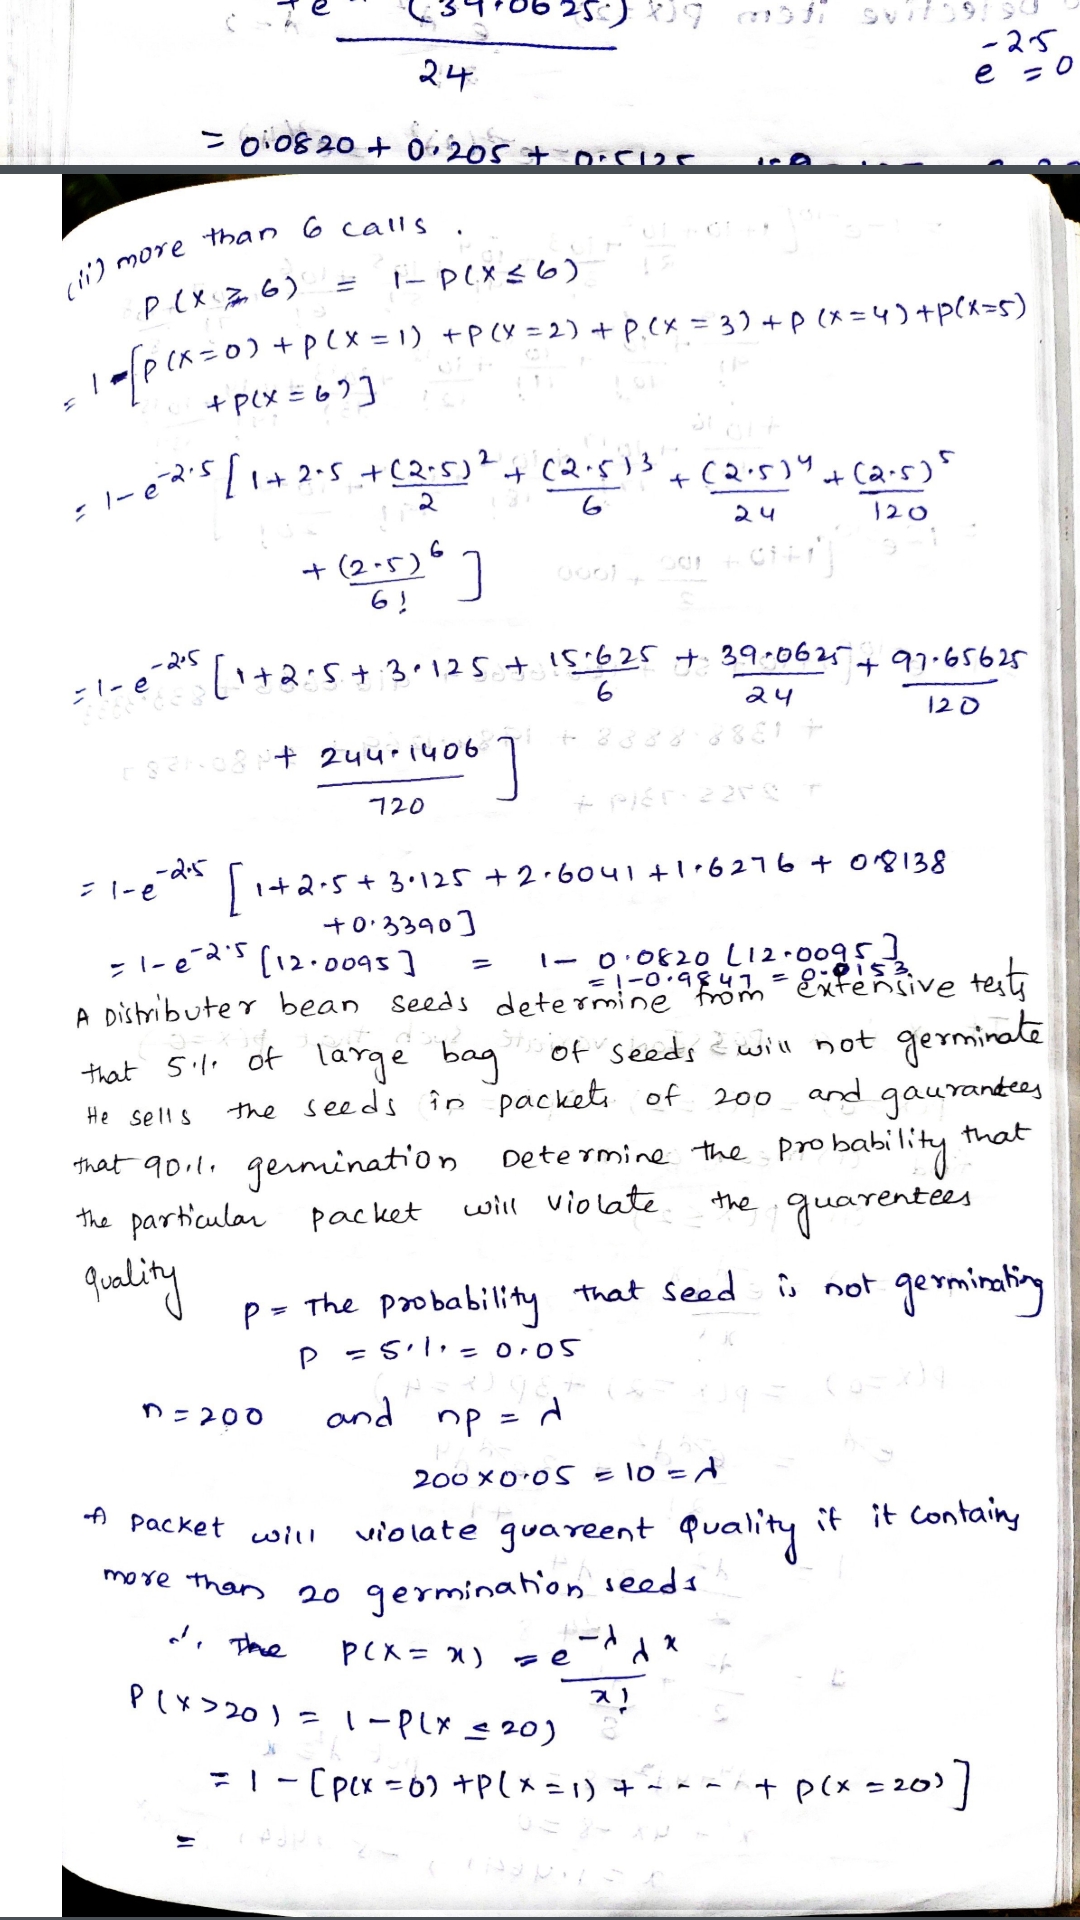 (39.0625)
24
e^-2.5 = 0
= 0.0820 + 0.205 + 0.5125
(ii) more than 6 calls .
P(X ≥ 6) = 1 - P(X ≤ 6)
= 1 - [P(X=0) + P(X=1) + P(X=2) + P(X=3) + P(X=4) + P(X=5)
+ P(X=6)]
= 1 - e^-2.5 [1 + 2.5 + (2.5)^2/2 + (2.5)^3/6 + (2.5)^4/24 + (2.5)^5/120
+ (2.5)^6/6! ]
= 1 - e^-2.5 [1 + 2.5 + 3.125 + 15.625/6 + 39.0625/24 + 97.65625/120
+ 244.1406/720 ]
= 1 - e^-2.5 [1 + 2.5 + 3.125 + 2.6041 + 1.6276 + 0.8138
+ 0.3390]
= 1 - e^-2.5 [12.0095] = 1 - 0.0820 [12.0095]
= 1 - 0.9847 = 0.0153
A Distributer bean seeds determine from extensive tests
that 5% of large bag of seeds will not germinate
He sells the seeds in packets of 200 and gaurantees
that 90% germination Determine the probability that
the particular packet will violate the guarentees
quality
p = The probability that seed is not germinating
P = 5% = 0.05
n = 200 and np = λ
200 x 0.05 = 10 = λ
A packet will violate guareent quality if it contains
more than 20 germination seeds
∴ The P(X = x) = e^-λ λ^x / x!
P(X > 20) = 1 - P(X ≤ 20)
= 1 - [P(X = 0) + P(X = 1) + - - - + P(X = 20)]
=